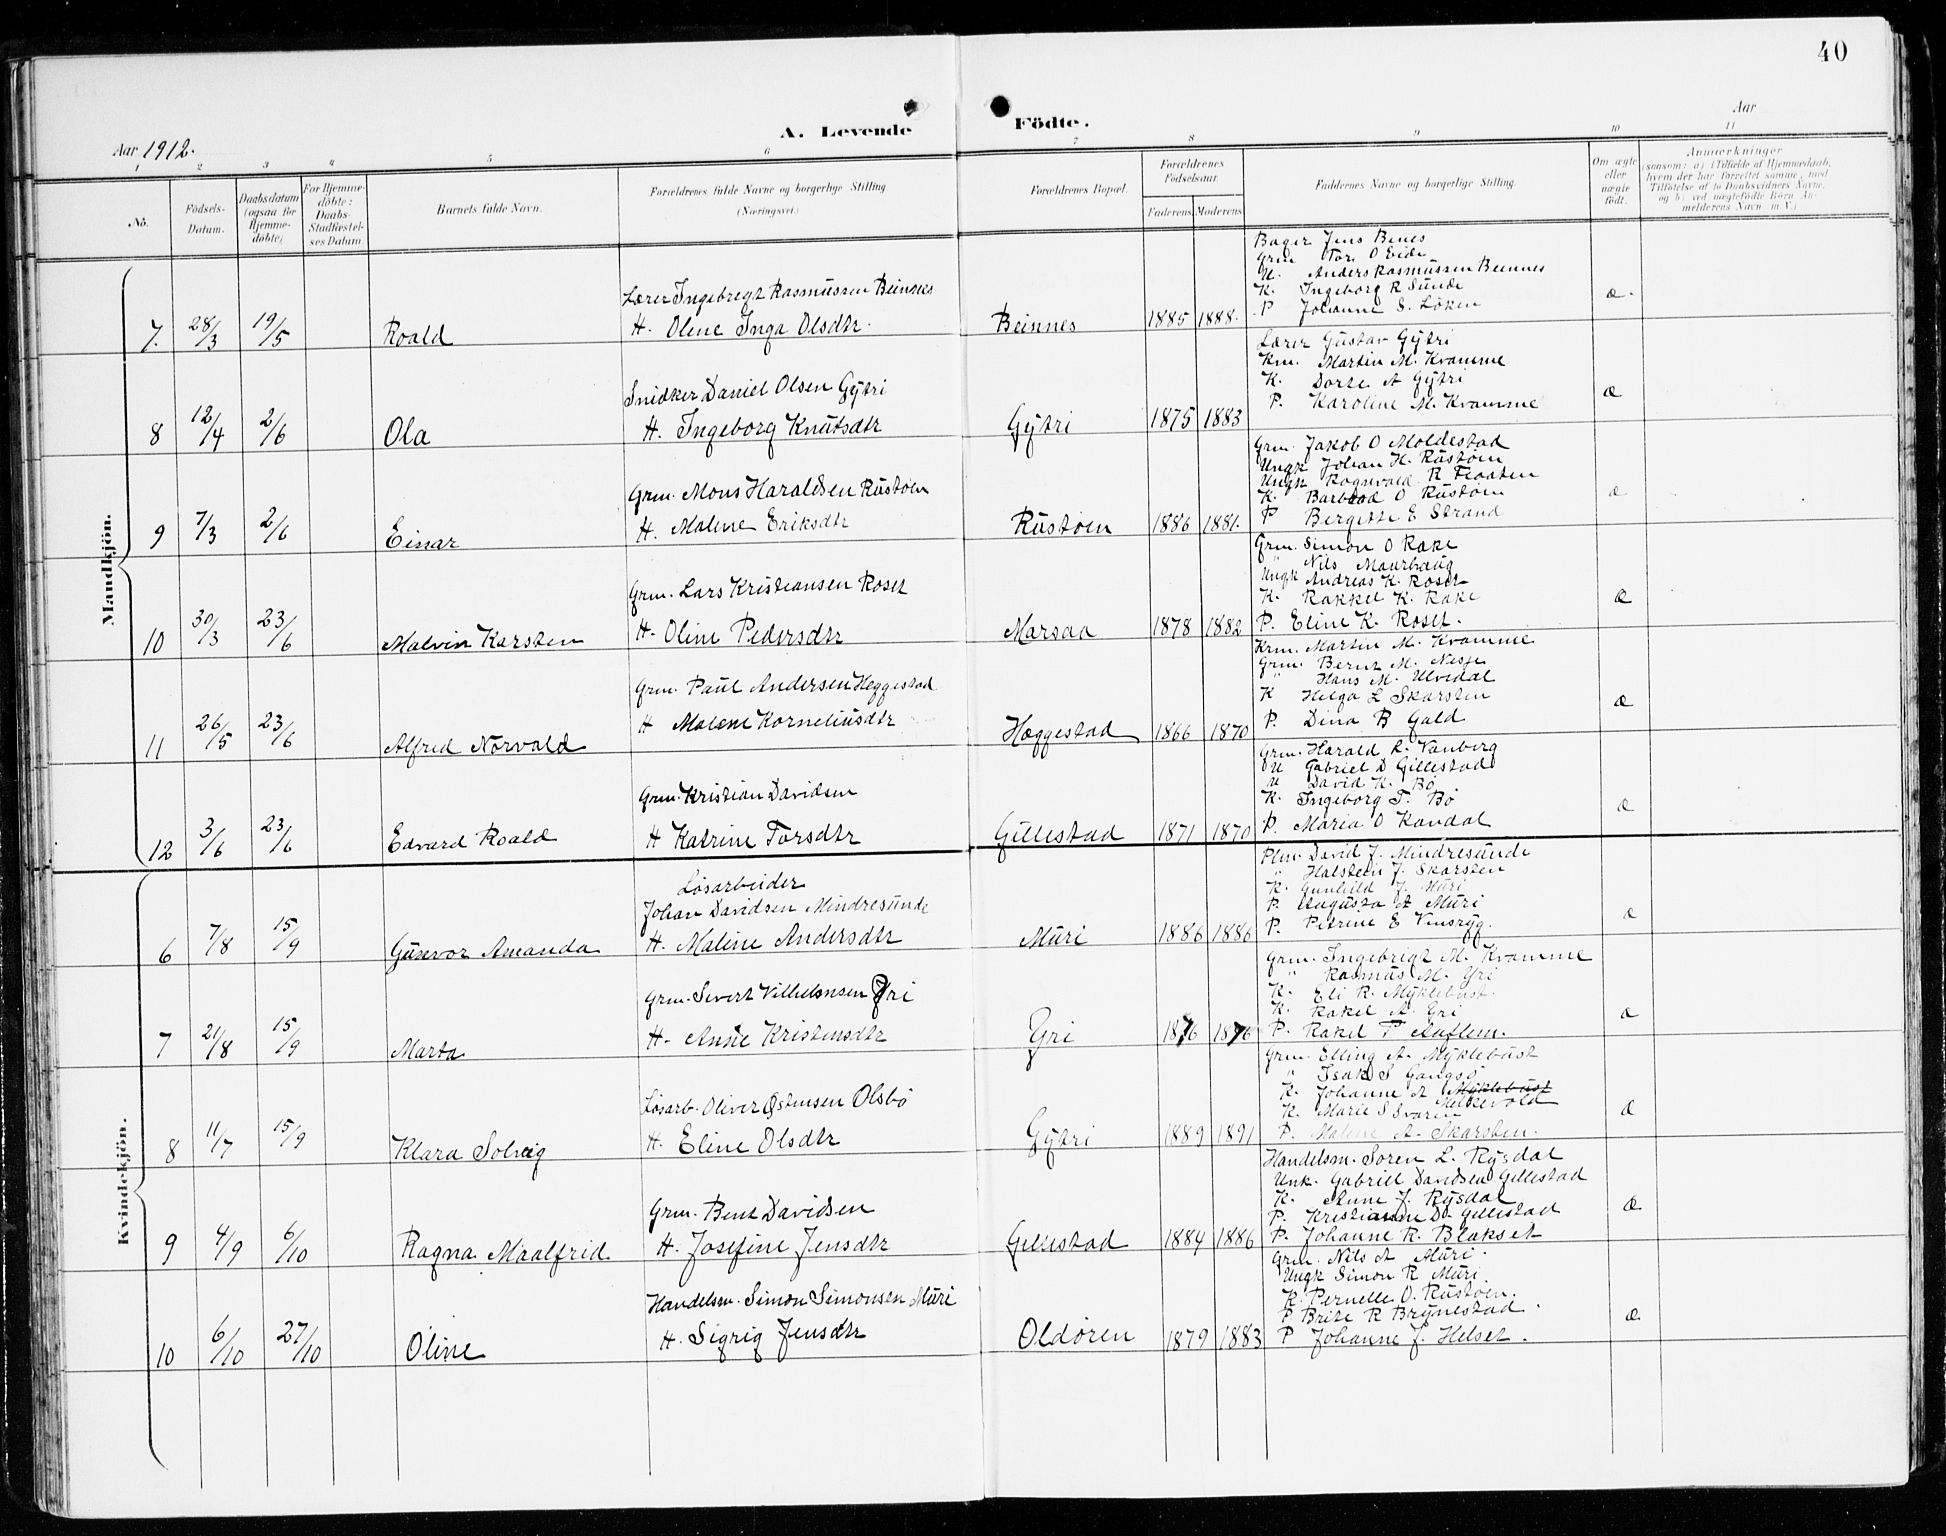 40
A. Levende Födte.
Aar 1912.
Aar
1 2 3 4 5 6 7 8 9 10 11
No.
Födsels-Datum.
Daabsdatum (ogsaa for Hjemme-döbte)
For Hjemme-döbte: Daabs-Stadfæstel-ses Datum
Barnets fulde Navn.
Forældrenes fulde Navne og borgerlige Stilling (Næringsvei.)
Forældrenes Bopæl.
Forældrenes Födselsaar.
Faderens Moderens
Faddernes Navne og borgerlige Stilling.
Om ægte eller uægte födt.
Anmærkninger
(saasom: a) i Tilfælde af Hjemmedaab, hvem der har forrettet samme, med Tilföielse af to Daabsvidners Navne, og b) ved uægtefödte Börn An-melderens Navn m. V.)
Mandkjön.
7. 28/3 19/5 Roald
Lærer Ingebregt Rasmussen Beinnes
H. Oline Inga Olsdtr.
Beinnes 1885 1888.
Bager Jens Benes
Grm Tor. O Eide
U. Anders Rasmussen Beinnes
K. Ingeborg R Sunde
P Johanne S. Löken
æ.
8 12/4 2/6 Ola
Snidker Daniel Olsen Gytri
H. Ingeborg Knutsdtr
Gytri 1875 1883
Lærer Gustav Gytri
Km. Martin M. Kvamme
K. Dorte A Gytri
P. Karoline M. Kvamme
æ
9 7/3 2/6 Einar
Grm. Mons Haraldsen Rustøen
H. Malene Eriksdtr
Rustøen 1886 1881.
Grm. Jakob O Moldestad
Ungk Johan H. Rustøen
Ungk Ragnvald R Floaten
K. Barbroe O Rustøen
P Bergitte E Strand
æ
10 30/3 23/6 Malvin Karsten
Grm. Lars Kristiansen Roset
H. Oline Pedersdtr
Marsaa 1878 1882
Grm. Simon O Rake
" Nils Maurbaug
Ungk Andreas K. Roset
K. Rakkel K. Rake
P. Eline K. Roset.
æ
11 26/5 23/6 Alfred Norvald
Grm. Paul Andersen Heggestad
H Malene Korneliusdtr
Heggestad 1866 1870
Krm. Martin M. Kvamme
Grm. Bernt M. Nesje
" Hans M. Ulvedal
K Helga L Skarsten
P. Dina B Gald
æ
12 3/6 23/6 Edvard Roald
Grm. Kristian Davidsen
H Katrine Torsdtr
Gillestad 1871 1870
Grm. Harald R. Vanberg
U Gabriel D Gillestad
U David K. Bö
K. Ingeborg T. Bö
P. Maria O Kandal
æ
Kvindekjön.
6 7/8 15/9 Gunvor Amanda
Løsarbeider
Johan Davidsen Mindresunde
H. Maline Andersdtr
Muri 1886 1886
Plm. David J. Mindresunde
" Halstein J. Skarsten
K. Gunhild J. Muri
P. Augusta A Muri
P. Petrine E Vinsryg.
æ
7 21/8 15/9 Marta
Grm. Sivert Villhelmsen Yri
H. Anne Kristensdtr
Yri 1876 1876
Grm. Ingebrigt M. Kvamme
" Rasmus M. Yri
K. Eli R. Myklebust.
K. Rakel A. Yri
P. Rakel P Aaflem.
æ
8 11/7 15/9 Klara Solveig
Løsarb. Oliver Østensen Olsbö
H. Eline Olsdtr
Gytri 1889 1891
Grm. Elling A. Myklebust
" Isak S Gangsö
K. Johanne A Myklebust Melkevold
K. Marie S
P. Malene A. Skarsten.
æ
9 4/9 6/10 Ragna Maalfrid
Grm. Bent Davidsen
H. Josefine Jensdtr
Gillestad 1884 1886
Handelsm. Soren L. Rysdal
Unk. Gabriel Davidsen Gillestad
K. Anne J. Rysdal
P. Kristianne D. Gillestad
P. Johanne R. Blakset
æ
10 6/10 27/10 Oline
Handelsm. Simon Simonsen Muri
H. Sigrig Jensdtr
Oldøren 1879 1883
Grm. Nils A Muri.
Ungk Simon R Muri.
K. Pernelle O. Rustøen.
P Brite R Brynestad.
P Johanne J. Helset.
æ